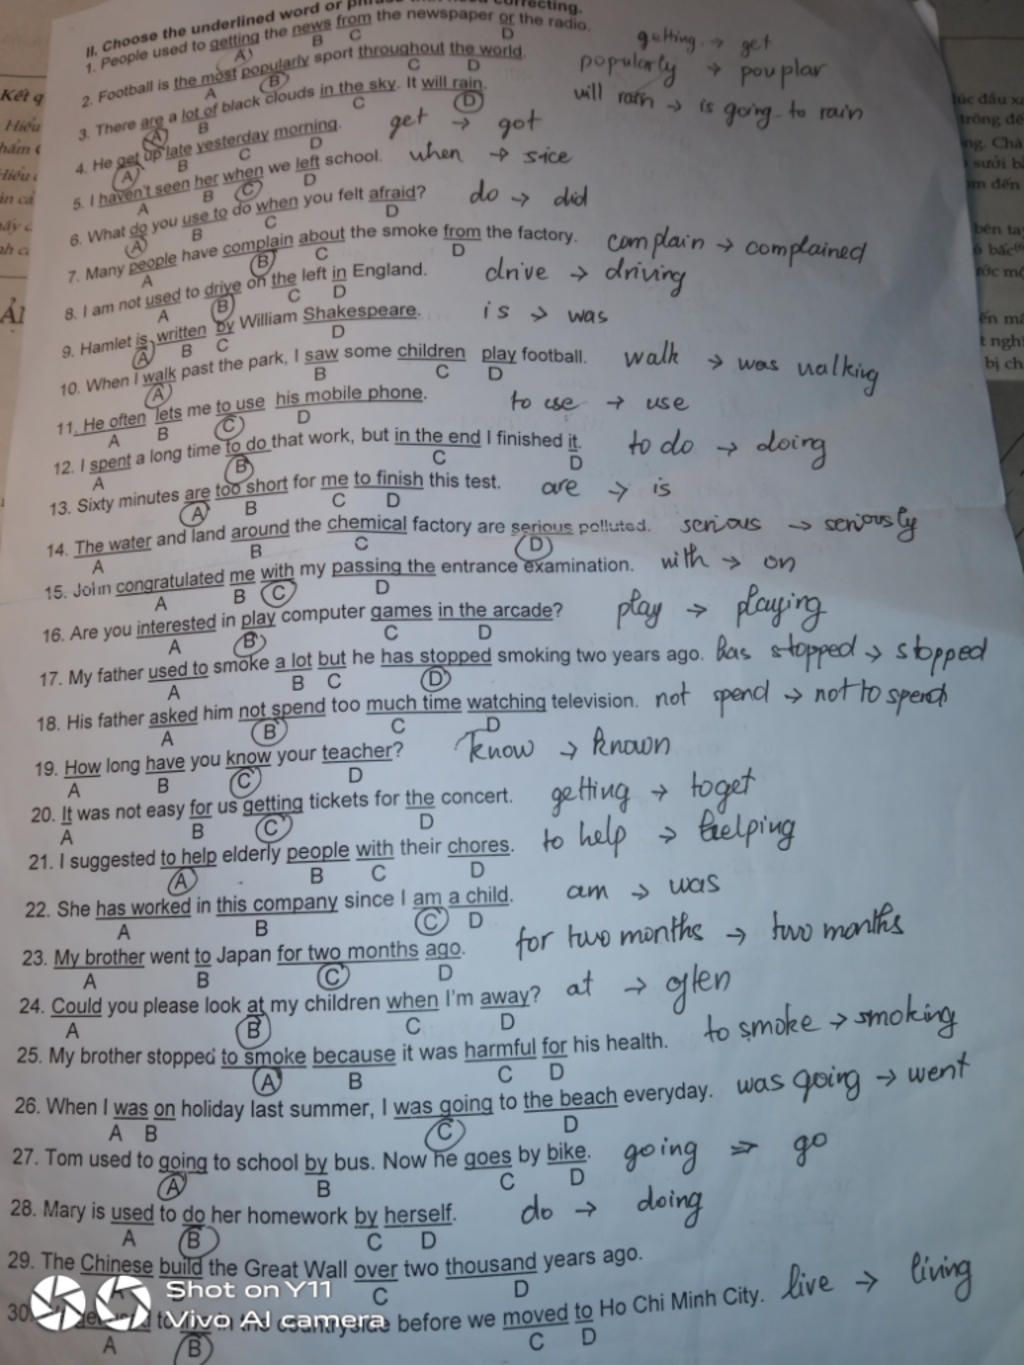 II. Choose the underlined word or
correcting.
1. People used to getting the news from the newspaper or the radio.
A B C D
getting → get
2. Football is the most popularly sport throughout the world.
A B C D
popularly → pouplar
3. There are a lot of black clouds in the sky. It will rain.
A B C D
will rain → is going to rain
4. He get up late yesterday morning.
A B C D
get → got
5. I haven't seen her when we left school.
A B C D
when → sice
6. What do you use to do when you felt afraid?
A B C D
do → did
7. Many people have complain about the smoke from the factory.
A B C D
complain → complained
8. I am not used to drive on the left in England.
A B C D
drive → driving
9. Hamlet is written by William Shakespeare.
A B C D
is → was
10. When I walk past the park, I saw some children play football.
A B C D
walk → was walking
11. He often lets me to use his mobile phone.
A B C D
to use → use
12. I spent a long time to do that work, but in the end I finished it.
A B C D
to do → doing
13. Sixty minutes are too short for me to finish this test.
A B C D
are → is
14. The water and land around the chemical factory are serious polluted.
A B C D
serious → seriously
15. John congratulated me with my passing the entrance examination.
A B C D
with → on
16. Are you interested in play computer games in the arcade?
A B C D
play → playing
17. My father used to smoke a lot but he has stopped smoking two years ago.
A B C D
has stopped → stopped
18. His father asked him not spend too much time watching television.
A B C D
not spend → not to spend
19. How long have you know your teacher?
A B C D
know → known
20. It was not easy for us getting tickets for the concert.
A B C D
getting → to get
21. I suggested to help elderly people with their chores.
A B C D
to help → helping
22. She has worked in this company since I am a child.
A B C D
am → was
23. My brother went to Japan for two months ago.
A B C D
for two months → two months
24. Could you please look at my children when I'm away?
A B C D
at →
25. My brother stopped to smoke because it was harmful for his health.
A B C D
to smoke → smoking
26. When I was on holiday last summer, I was going to the beach everyday.
A B C D
was going → went
27. Tom used to going to school by bus. Now he goes by bike.
A B C D
going → go
28. Mary is used to do her homework by herself.
A B C D
do → doing
29. The Chinese build the Great Wall over two thousand years ago.
C D
30. to in the countryside before we moved to Ho Chi Minh City.
A B C D
live → living
Shot on Y11
Vivo AI camera
Kết q
Hiểu